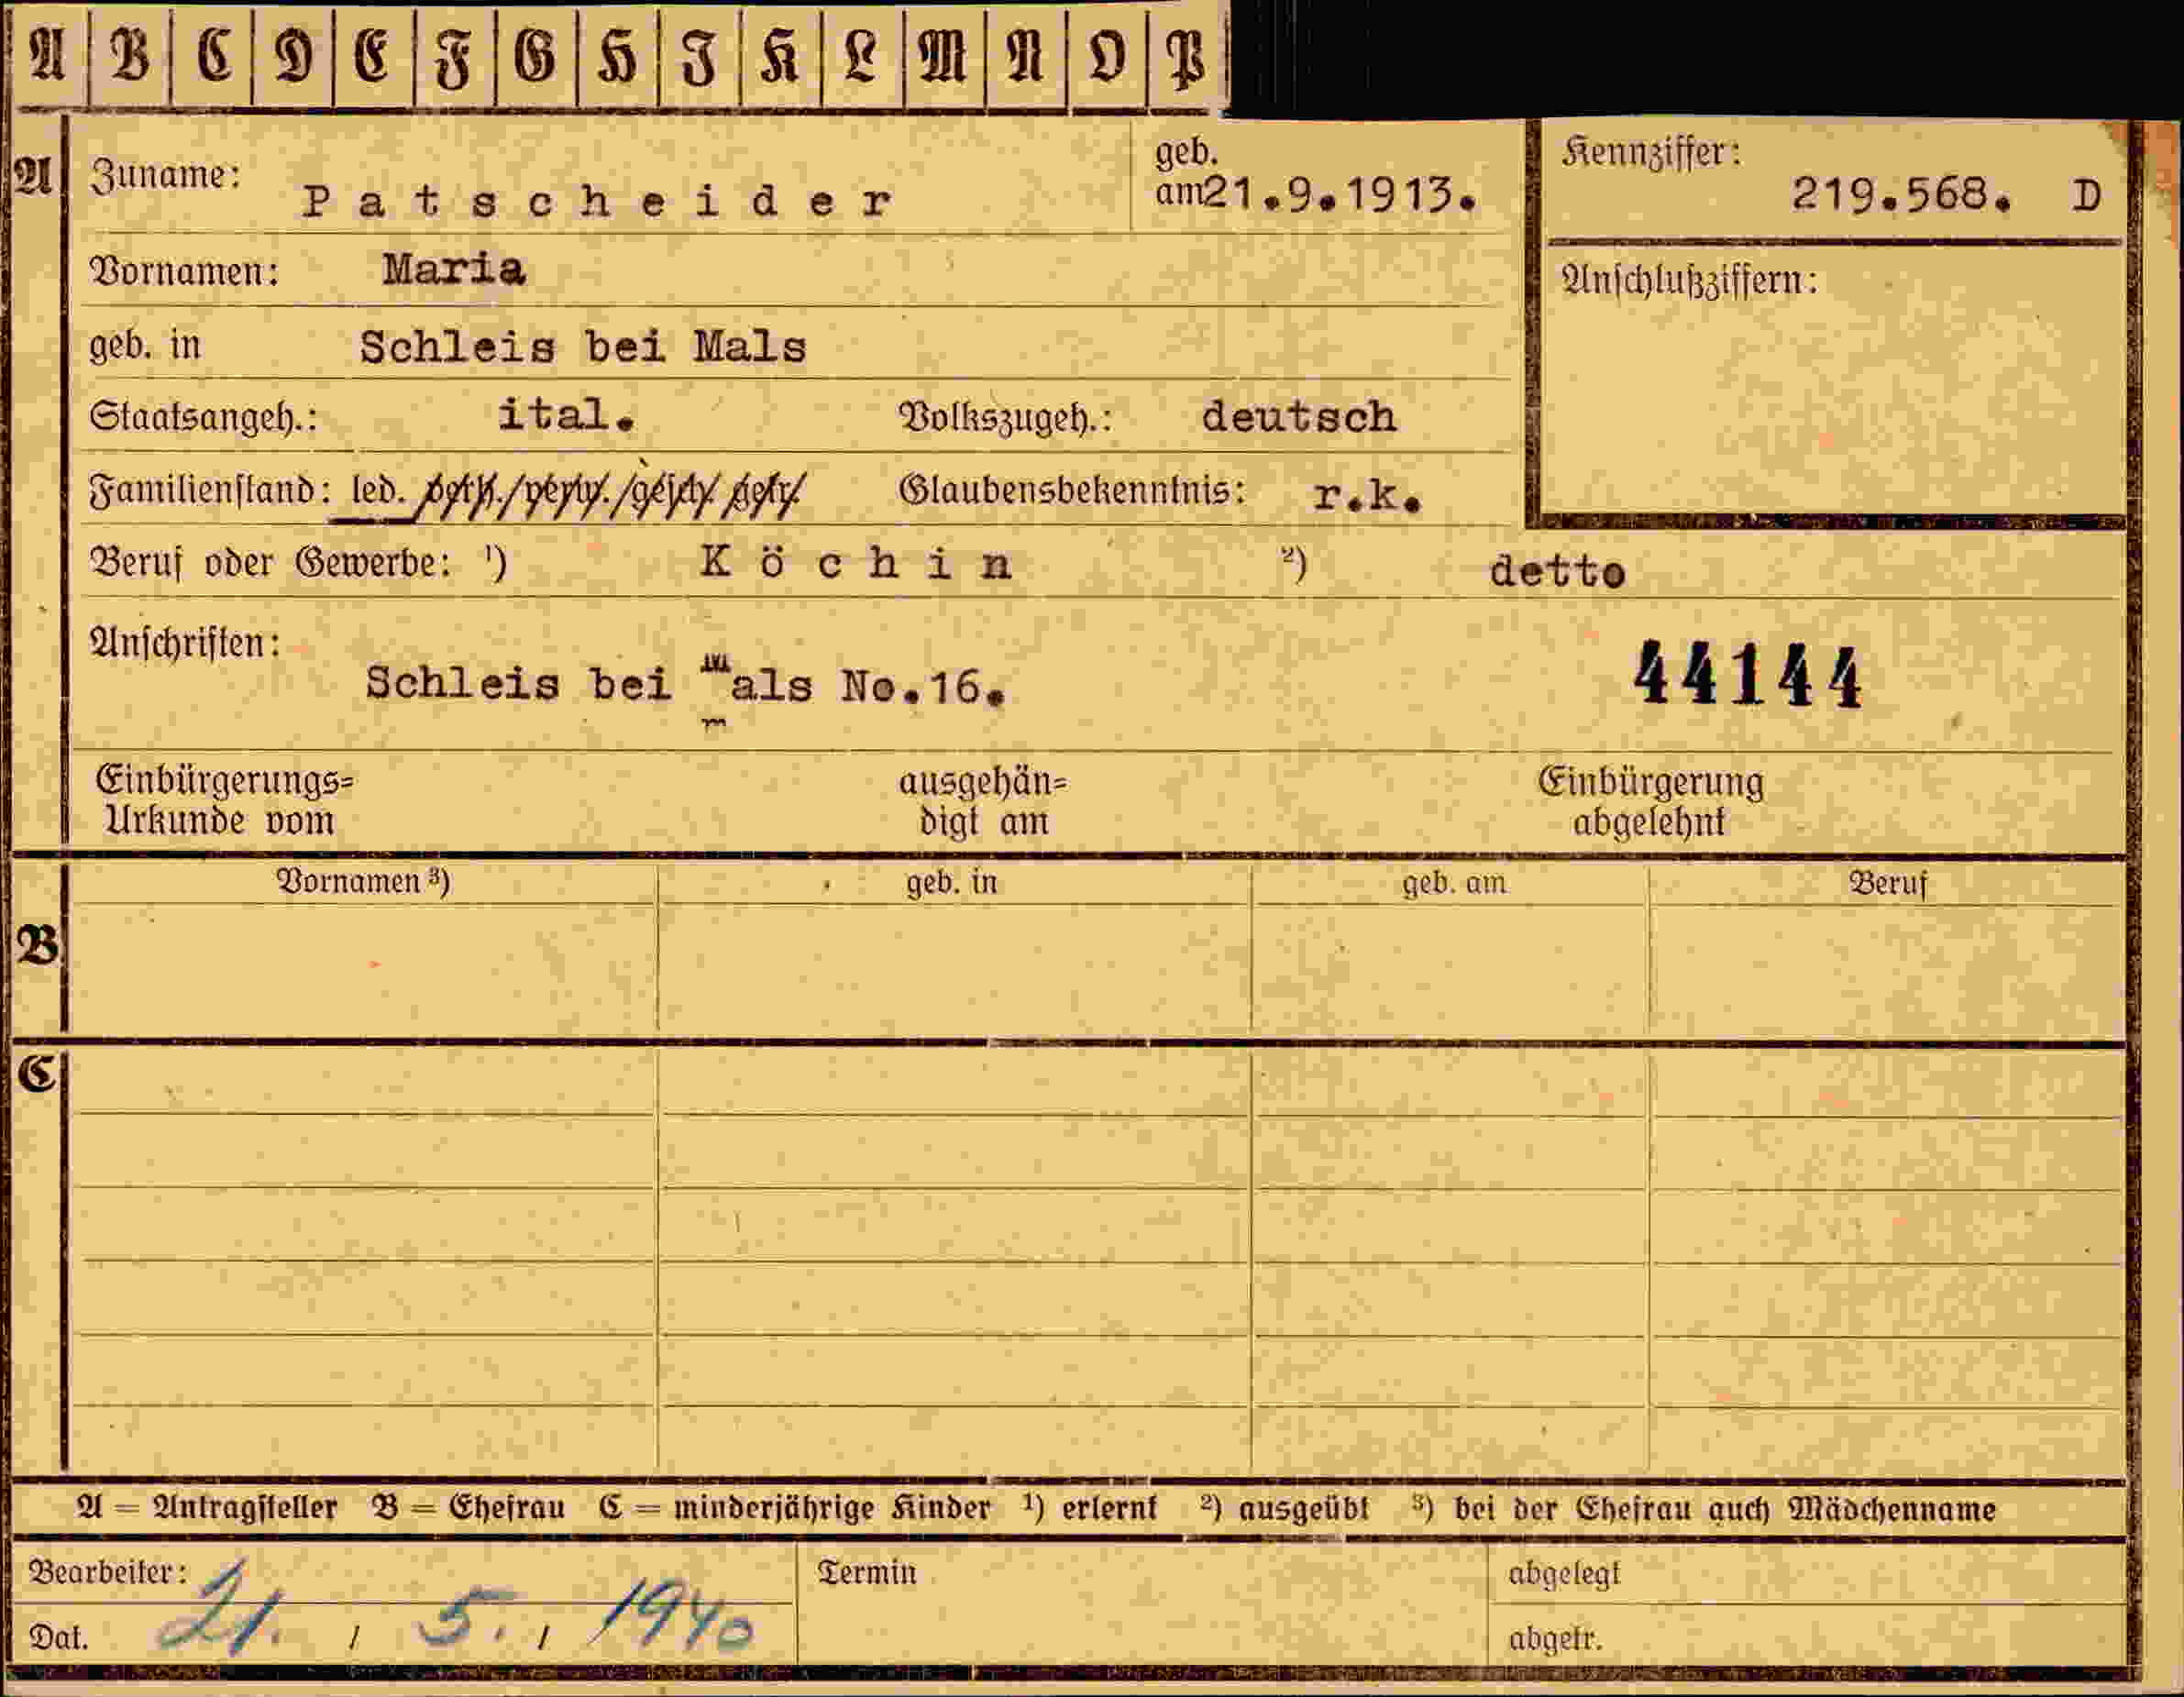 A B C D E F G H I K L M N O P
A Zuname: Patscheider geb. am 21.9.1913. Kennziffer: 219.568. D
Vornamen: Maria Anschlußziffern:
geb. in Schleis bei Mals
Staatsangeh.: ital. Volkszugeh.: deutsch
Familienstand: led. verh./verw./gesch. getr. Glaubensbekenntnis: r.k.
Beruf oder Gewerbe: ¹) Köchin ²) detto
Anschriften: Schleis bei Mals No.16. 44144
Einbürgerungs= ausgehän= Einbürgerung
Urkunde vom digt am abgelehnt
Vornamen ³) geb. in geb. am Beruf
B
C
A = Antragsteller B = Ehefrau C = minderjährige Kinder ¹) erlernt ²) ausgeübt ³) bei der Ehefrau auch Mädchenname
Bearbeiter: Termin abgelegt
Dat. 21. / 5. / 1940 abgetr.